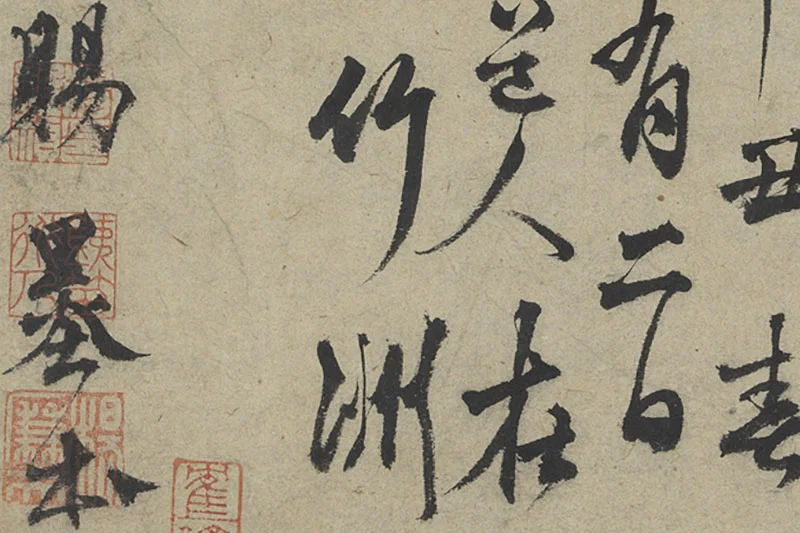 丑春
有二日
人在
竹洲
賜墨本